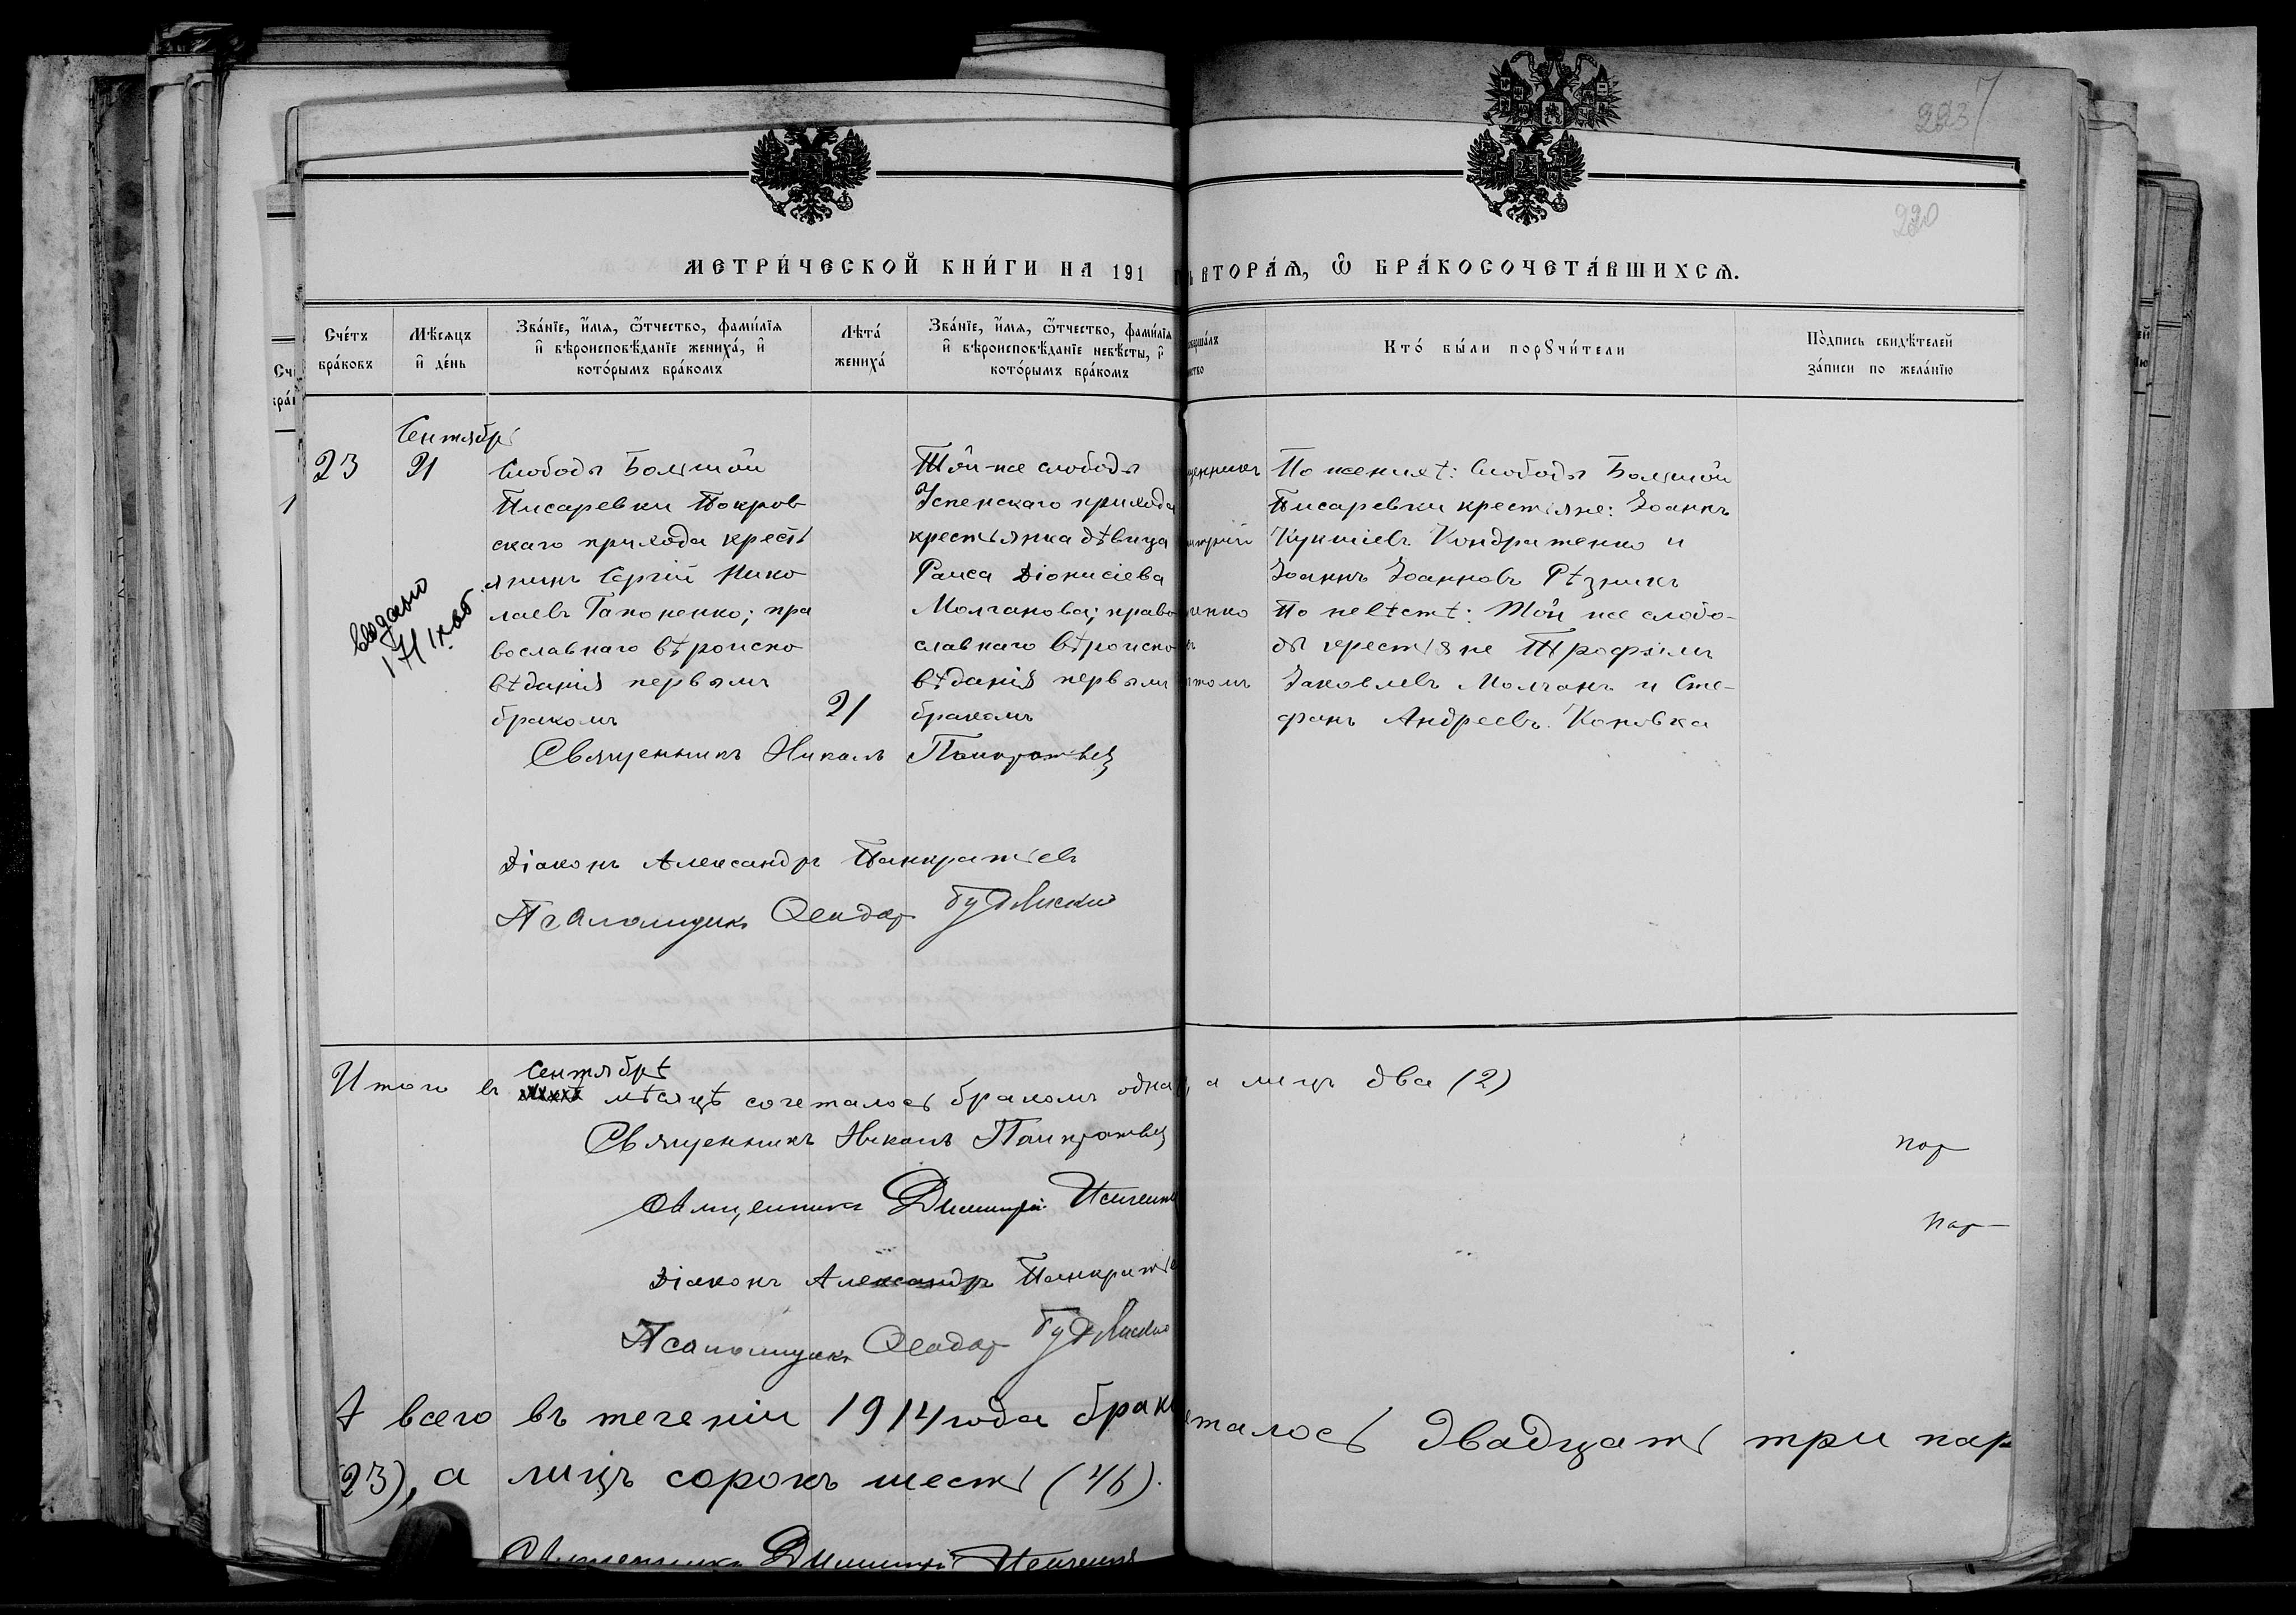 2237
220
МЕТРИ́ЧЕСКОЙ КНИ́ГИ НА 191
ВТОРА́Ѧ, Ѿ БРА́КОСОЧЕТА́ВШИХСѦ.
Сче́тъ бра́ковъ
Мѣсяцъ и҆ де́нь
Зва́нїе, и҆́мѧ, ѻ҆́тчество, фами́лїѧ и҆ вѣроисповѣданїе жениха́, и҆ кото́рымъ бра́комъ
Лѣта́ жениха́
Зва́нїе, и҆́мѧ, ѻ҆́тчество, фами́лїѧ и҆ вѣроисповѣданїе невѣсты, и҆ кото́рымъ бра́комъ
Кто́ бы́ли порꙋчи́тели
По́дпись свидѣтелей за́писи по жела́нїю
Сентябрь
23
21
Слободы Большой
Писаревки Покров
скаго прихода кресть
янинъ Сергій Нико
лаевъ Гапоненко; пра
вославнаго вѣроиспо
вѣданія первымъ
бракомъ
21
Той-же слободы
Успенскаго прихода
крестьянка дѣвица
Раиса Діонисіева
Молчанова; право
славнаго вѣроиспо
вѣданія первымъ
бракомъ
По женихѣ: Слободы Большой
Писаревки крестьяне: Іоаннъ
Кондратенко и
Іоаннъ Іоанновъ Рѣзникъ
По невѣстѣ: Той же слобо-
ды крестьяне Трофимъ
Іаковлевъ Молчанъ и Сте-
фанъ Андреевъ Коновка
Священникъ Николъ Панкратьев
Діаконъ Александръ Панкратьевъ
Псаломщикъ Ѳеодоръ
Итого въ Сентябрѣ мѣсяцѣ сочеталось бракомъ одна а лицъ два (2)
Священникъ Николъ Панкратьев
пар
Священникъ Димитрій
пар
Діаконъ Александръ Панкратье
Псаломщикъ Ѳеодоръ
А всего въ теченіи 1914 года брак еталось двадцать три пар
(23), а лицъ сорокъ шесть (46).
Священникъ Димитрій